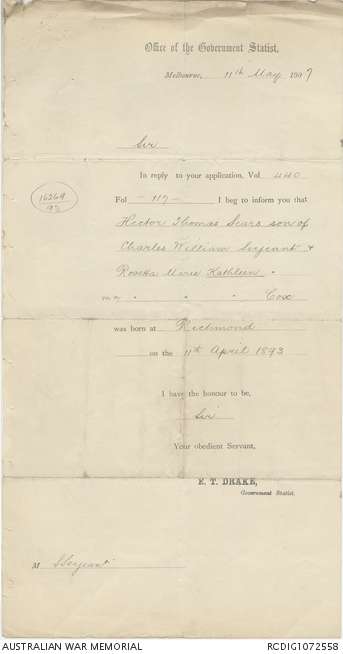 Office of the Government Statist.
Melbourne, 11th May 1907
Sir
In reply to your application, Vol 440
16269
93
Fol - 117 - I beg to inform you that
Hector Thomas Sears son of
Charles William Serjeant &
Rosetta Marie Kathleen "
" " " Cox
was born at Richmond
on the 11th April 1893
I have the honour to be,
Sir
Your obedient Servant,
F. T. DRAKE,
Government Statist.
M Serjeant
AUSTRALIAN WAR MEMORIAL
RCDIG1072558